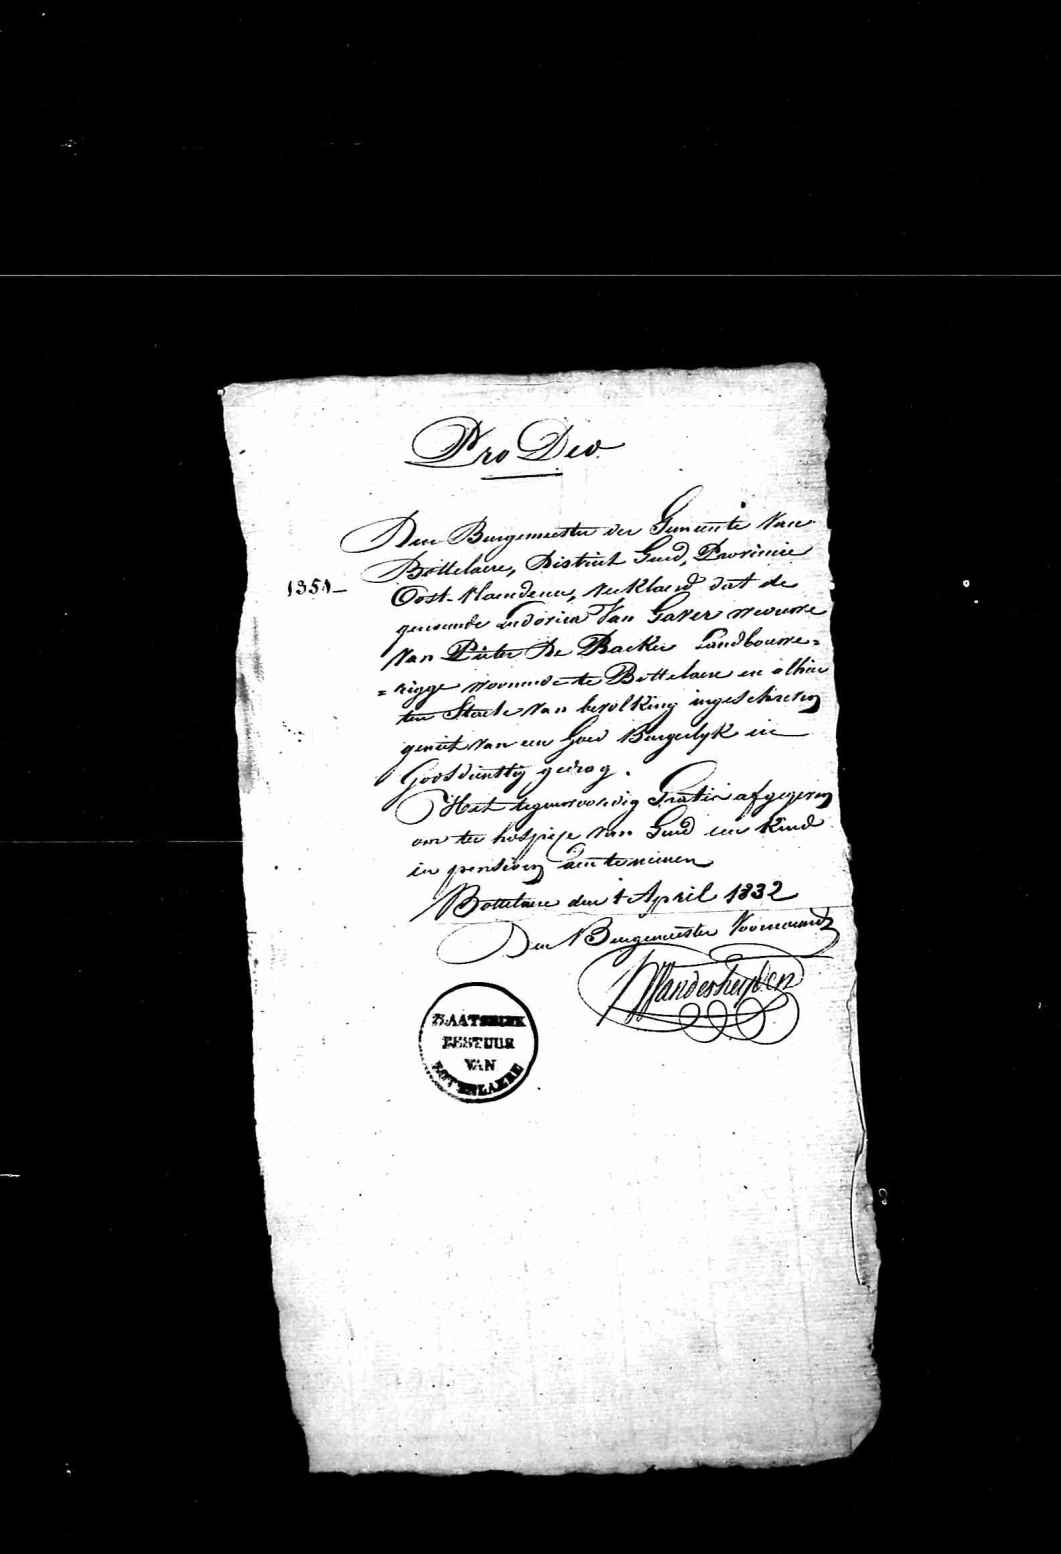 Pro Deo
Den Burgemeester der Gemeente Van
Bottelaere, District Gend, Provincie
1351-
Oost-Vlaenderen, Verklaerd dat de
genaemde Ludovica Van Gaver weduwe
Van Pieter De Backer Landbouwe=
=rigge woonende te Bottelaere en alhier
ten Staete Van bevolking ingeschreven
geniet van een Goed Burgerlyk en
Godsdienstig gedrag.
Het tegenwoordig Gratis afgegeven
om ter hospice van Gend een kind
in pensioen aen te nemen
Bottelaere den 1 April 1832
Den Burgemeester Voornoemd
Vanderheyden
PLAATSELYK
BESTUUR
VAN
BOTTELAERE